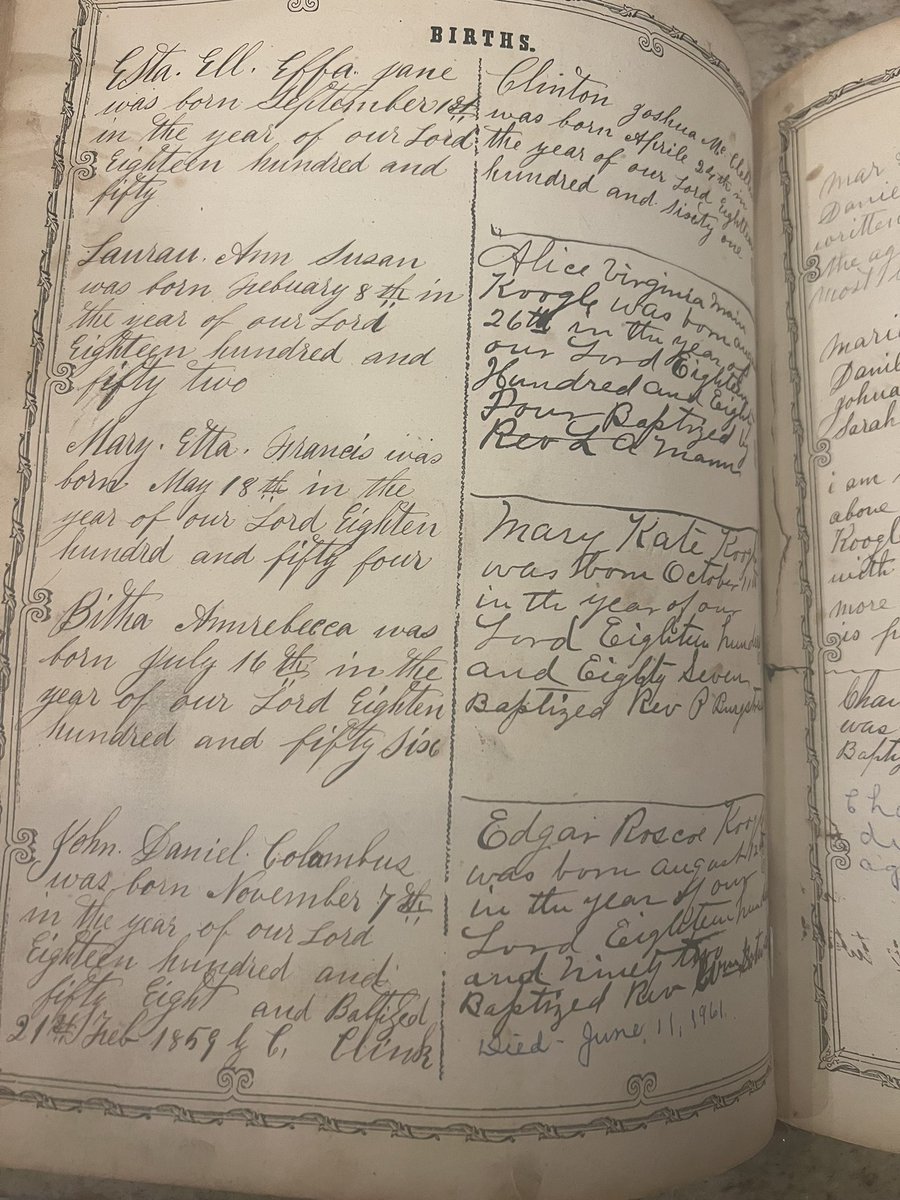 BIRTHS.
Esta. Ell. Effa. jane
was born September 1st
in the year of our Lord
Eighteen hundred and
fifty
Laurau. Ann Susan
was born Febuary 8th in
the year of our Lord
Eighteen hundred and
fifty two
Mary. Etta. Francis was
born May 18th in the
year of our Lord Eighten
hundrd and fifty four
Bitha Annrebecca was
born july 16th in the
year of our Lord Eighten
hundred and fifty Six
John. Daniel. Colambus
was born November 7th
in the year of our Lord
Eighteen hundred and
fifty Eight and Batized
21st Feb 1859 by C. Clink
Clinton Joshua Mc
was born Aprile 24th in
the year of our Lord Eighteen
hundred and Sixty one
Alice Virginia main
Koogle was born
26th in the year of
our Lord Eighteen
Hundred and Eighty
Four Baptized by
Rev L A Mann
Mary Kate
was born October
in the year of our
Lord Eighteen
and Eighty Seven
Baptized Rev P
Edgar Roscoe
was born august 12th
in the year of our
Lord Eighteen
and Ninety two
Baptized Rev
Died - June, 11, 1961.
mar
written
the ag
most
marie
Sarah
i am
above
Koogle
with
more
is
was